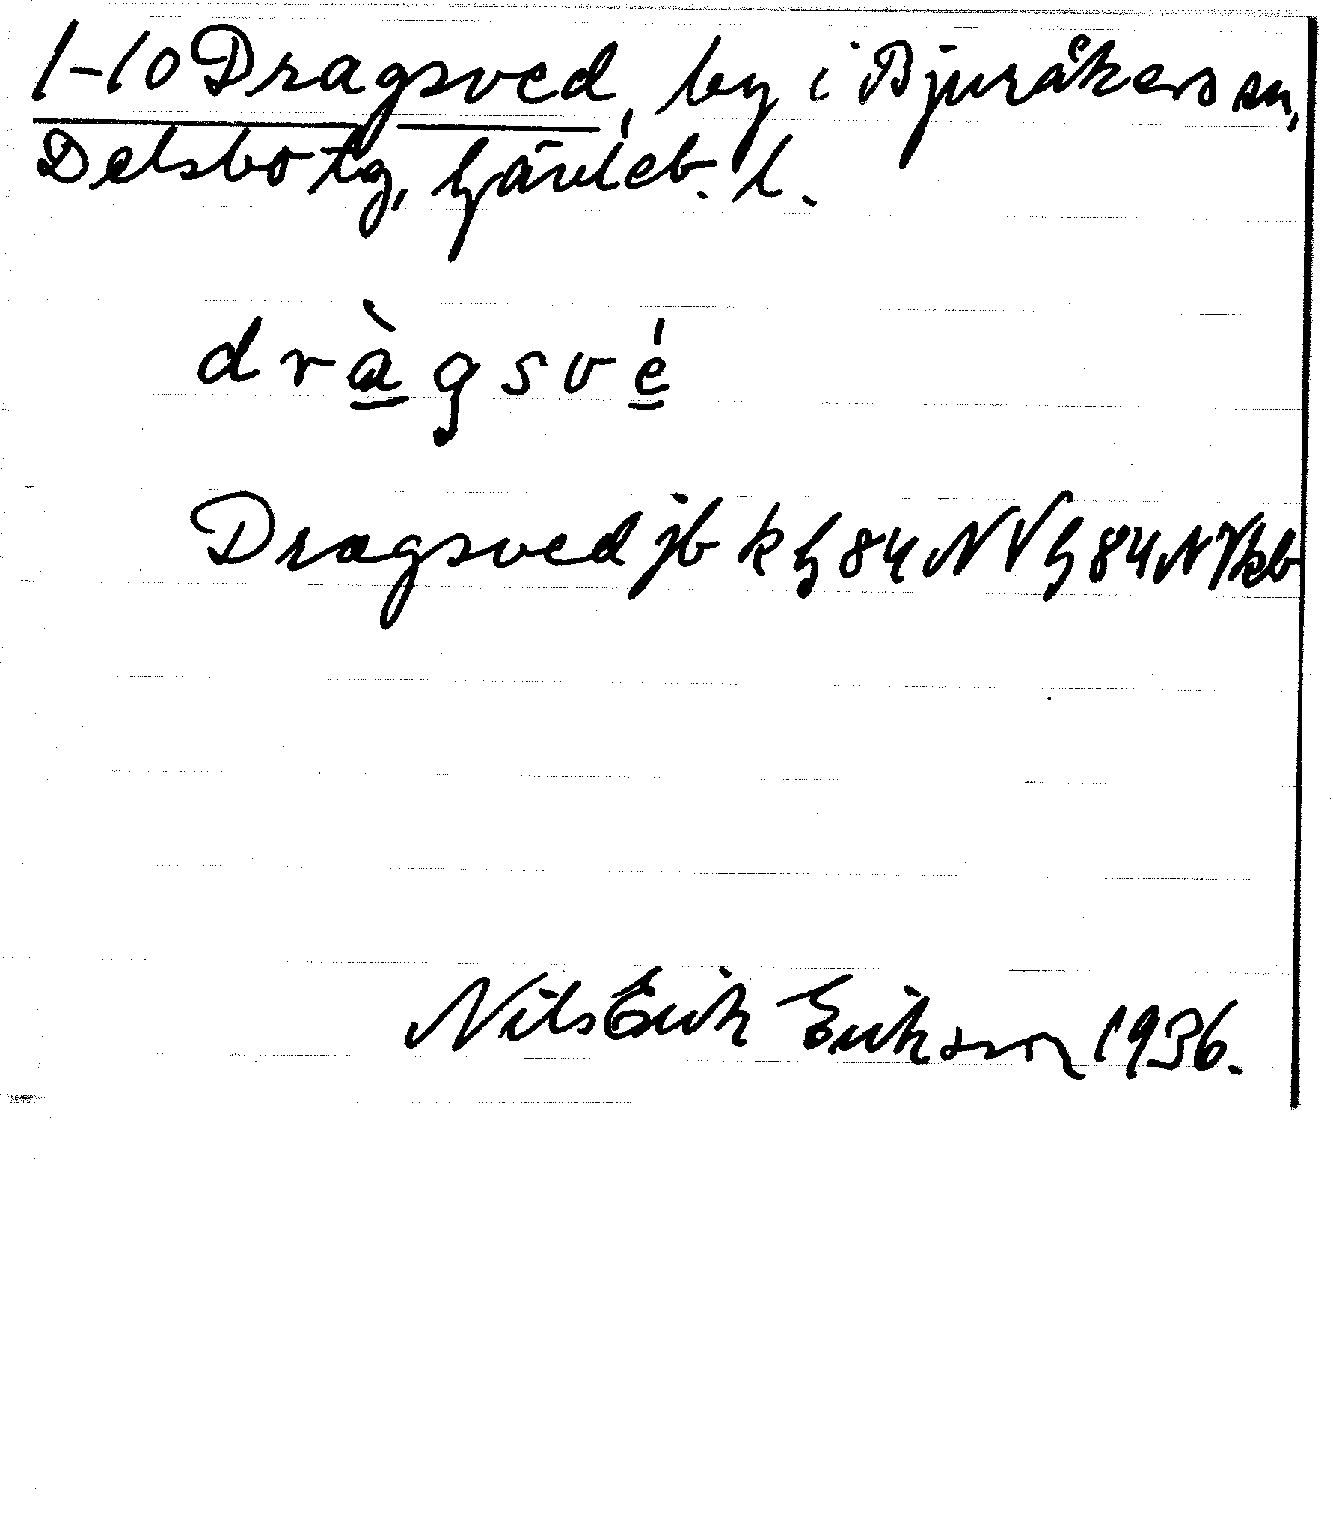 1-10 Dragsved, by i Bjuråkers sn,
Delsbo tg, Gävleb. l.
dràgsvé
Dragsved jb k G84NV G84NV kb
Nils Erik Eriksson 1936.